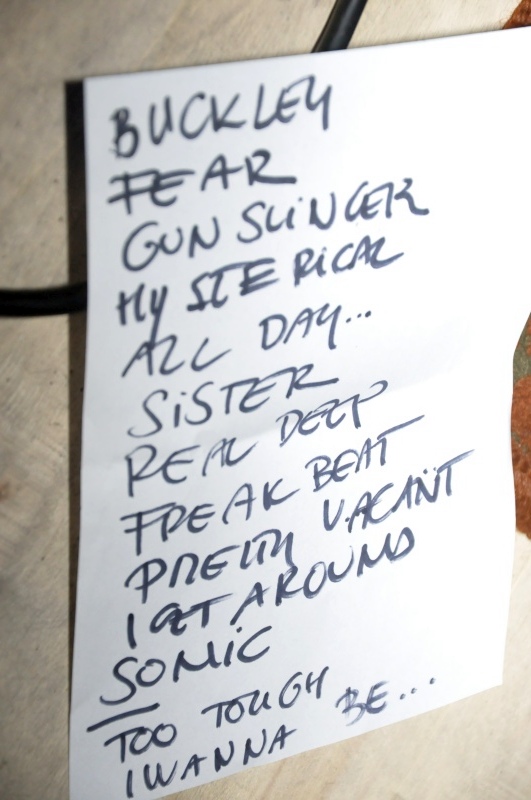 BUCKLEY
FEAR
GUNSLiNGER
HYSTERiCAL
ALL DAY...
SiSTER
REAL DEEP
FREAK BEAT
PRETTY VACANT
I GET AROUND
SONiC
TOO TOUGH
I WANNA BE...